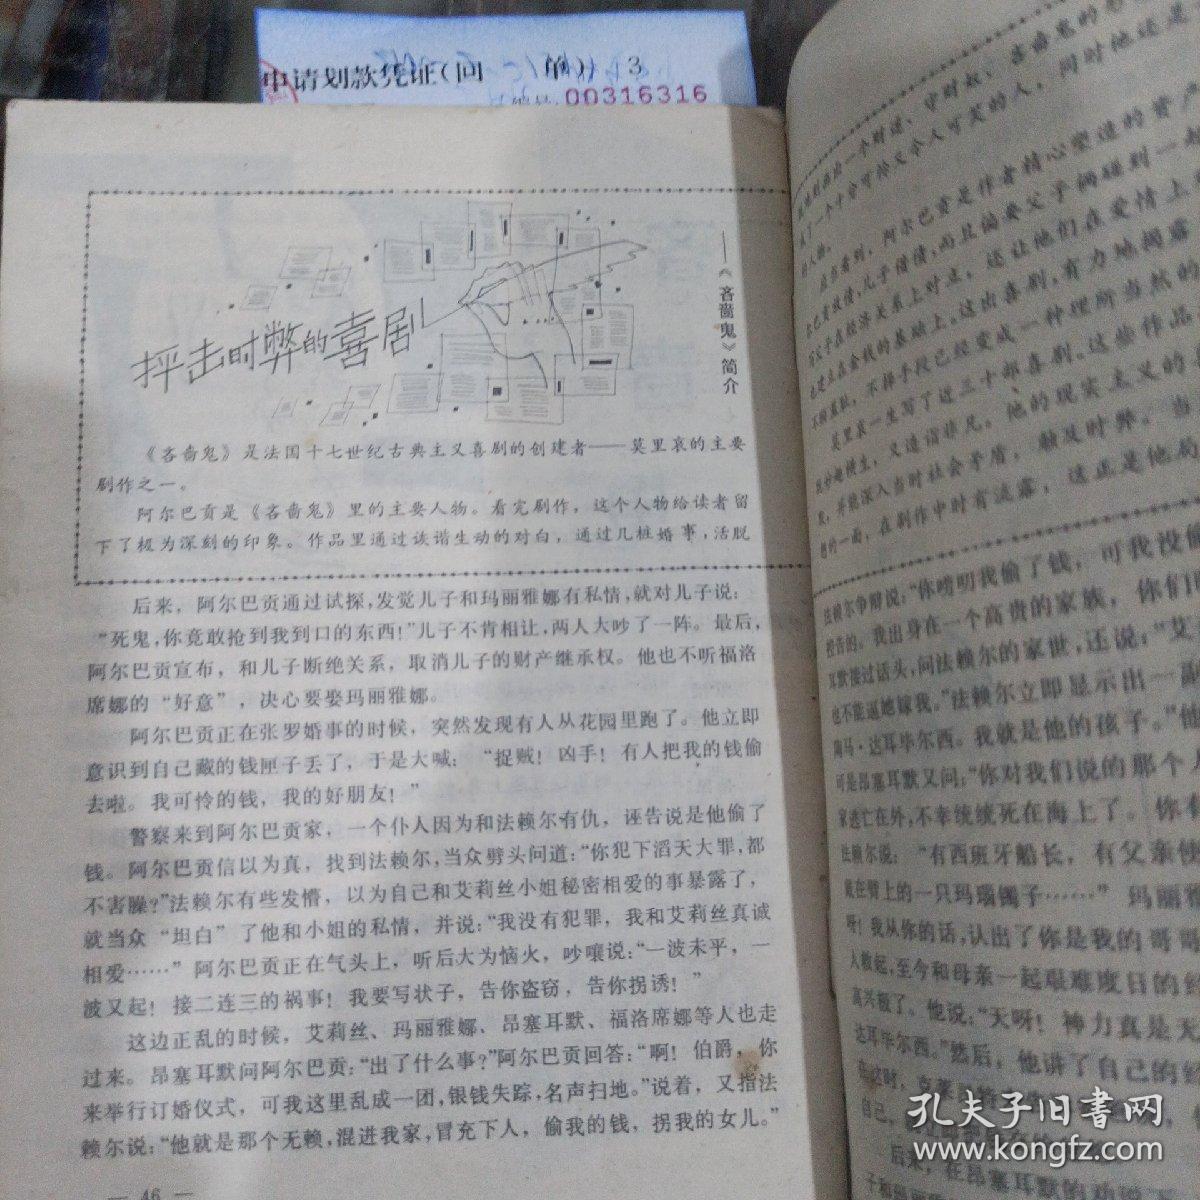 申请划款凭证(回 单) 3
00316316
抨击时弊的喜剧
——《吝啬鬼》简介
《吝啬鬼》是法国十七世纪古典主义喜剧的创建者——莫里哀的主要
剧作之一。
阿尔巴贡是《吝啬鬼》里的主要人物。看完剧作，这个人物给读者留
下了极为深刻的印象。作品里通过诙谐生动的对白，通过几桩婚事，活脱
后来，阿尔巴贡通过试探，发觉儿子和玛丽雅娜有私情，就对儿子说：
“死鬼，你竟敢抢到我到口的东西！”儿子不肯相让，两人大吵了一阵。最后，
阿尔巴贡宣布，和儿子断绝关系，取消儿子的财产继承权。他也不听福洛
席娜的“好意”，决心要娶玛丽雅娜。
阿尔巴贡正在张罗婚事的时候，突然发现有人从花园里跑了。他立即
意识到自己藏的钱匣子丢了，于是大喊：“捉贼！凶手！有人把我的钱偷
去啦。我可怜的钱，我的好朋友！”
警察来到阿尔巴贡家，一个仆人因为和法赖尔有仇，诬告说是他偷了
钱。阿尔巴贡信以为真，找到法赖尔，当众劈头问道：“你犯下滔天大罪，都
不害臊？”法赖尔有些发懵，以为自己和艾莉丝小姐秘密相爱的事暴露了，
就当众“坦白”了他和小姐的私情，并说：“我没有犯罪，我和艾莉丝真诚
相爱……”阿尔巴贡正在气头上，听后大为恼火，吵嚷说：“一波未平，一
波又起！接二连三的祸事！我要写状子，告你盗窃，告你拐诱！”
这边正乱的时候，艾莉丝、玛丽雅娜、昂塞耳默、福洛席娜等人也走
过来。昂塞耳默问阿尔巴贡：“出了什么事？”阿尔巴贡回答：“啊！伯爵，你
来举行订婚仪式，可我这里乱成一团，银钱失踪，名声扫地。”说着，又指法
赖尔说：“他就是那个无赖，混进我家，冒充下人，偷我的钱，拐我的女儿。”
— 46 —
一个财迷、守财奴、吝啬鬼的形
了一个十分可怜又令人可笑的人，同时他还是
的人物。
应当看到，阿尔巴贡是作者精心塑造的资产
尔巴贡放债，儿子借债，而且偏要父子俩碰到一起
写父子在经济关系上对立，还让他们在爱情上
也建立在金钱的基础上。这出喜剧，有力地揭露
不择手段已经变成一种理所当然的
莫里哀一生写了近三十部喜剧。这些作品
又造诣非凡。他的现实主义的
并能深入当时社会矛盾，触及时弊。当
想的一面，在剧作中时有流露，这正是他局
法赖尔争辩说：“你唠叨我偷了钱，可我没偷
控告的。我出身在一个高贵的家族，你们
耳默接过话头，问法赖尔的家世，还说：“艾
也不能逼她嫁我。”法赖尔立即显示出一副
马·达耳毕尔西。我就是他的孩子。”他
可是昂塞耳默又问：“你对我们说的那个人
家逃亡在外，不幸统统死在海上了。你有
法赖尔说：“有西班牙船长，有父亲使
戴在臂上的一只玛瑙镯子……”玛丽雅
呀！我从你的话，认出了你是我的哥哥
人救起，至今和母亲一起艰难度日的经
高兴极了。他说：“天呀！神力真是天
达耳毕尔西。”然后，他讲了自己的经
在这时，克莱
自己，
后来，在昂塞耳默的
孔夫子旧书网
www.kongfz.com